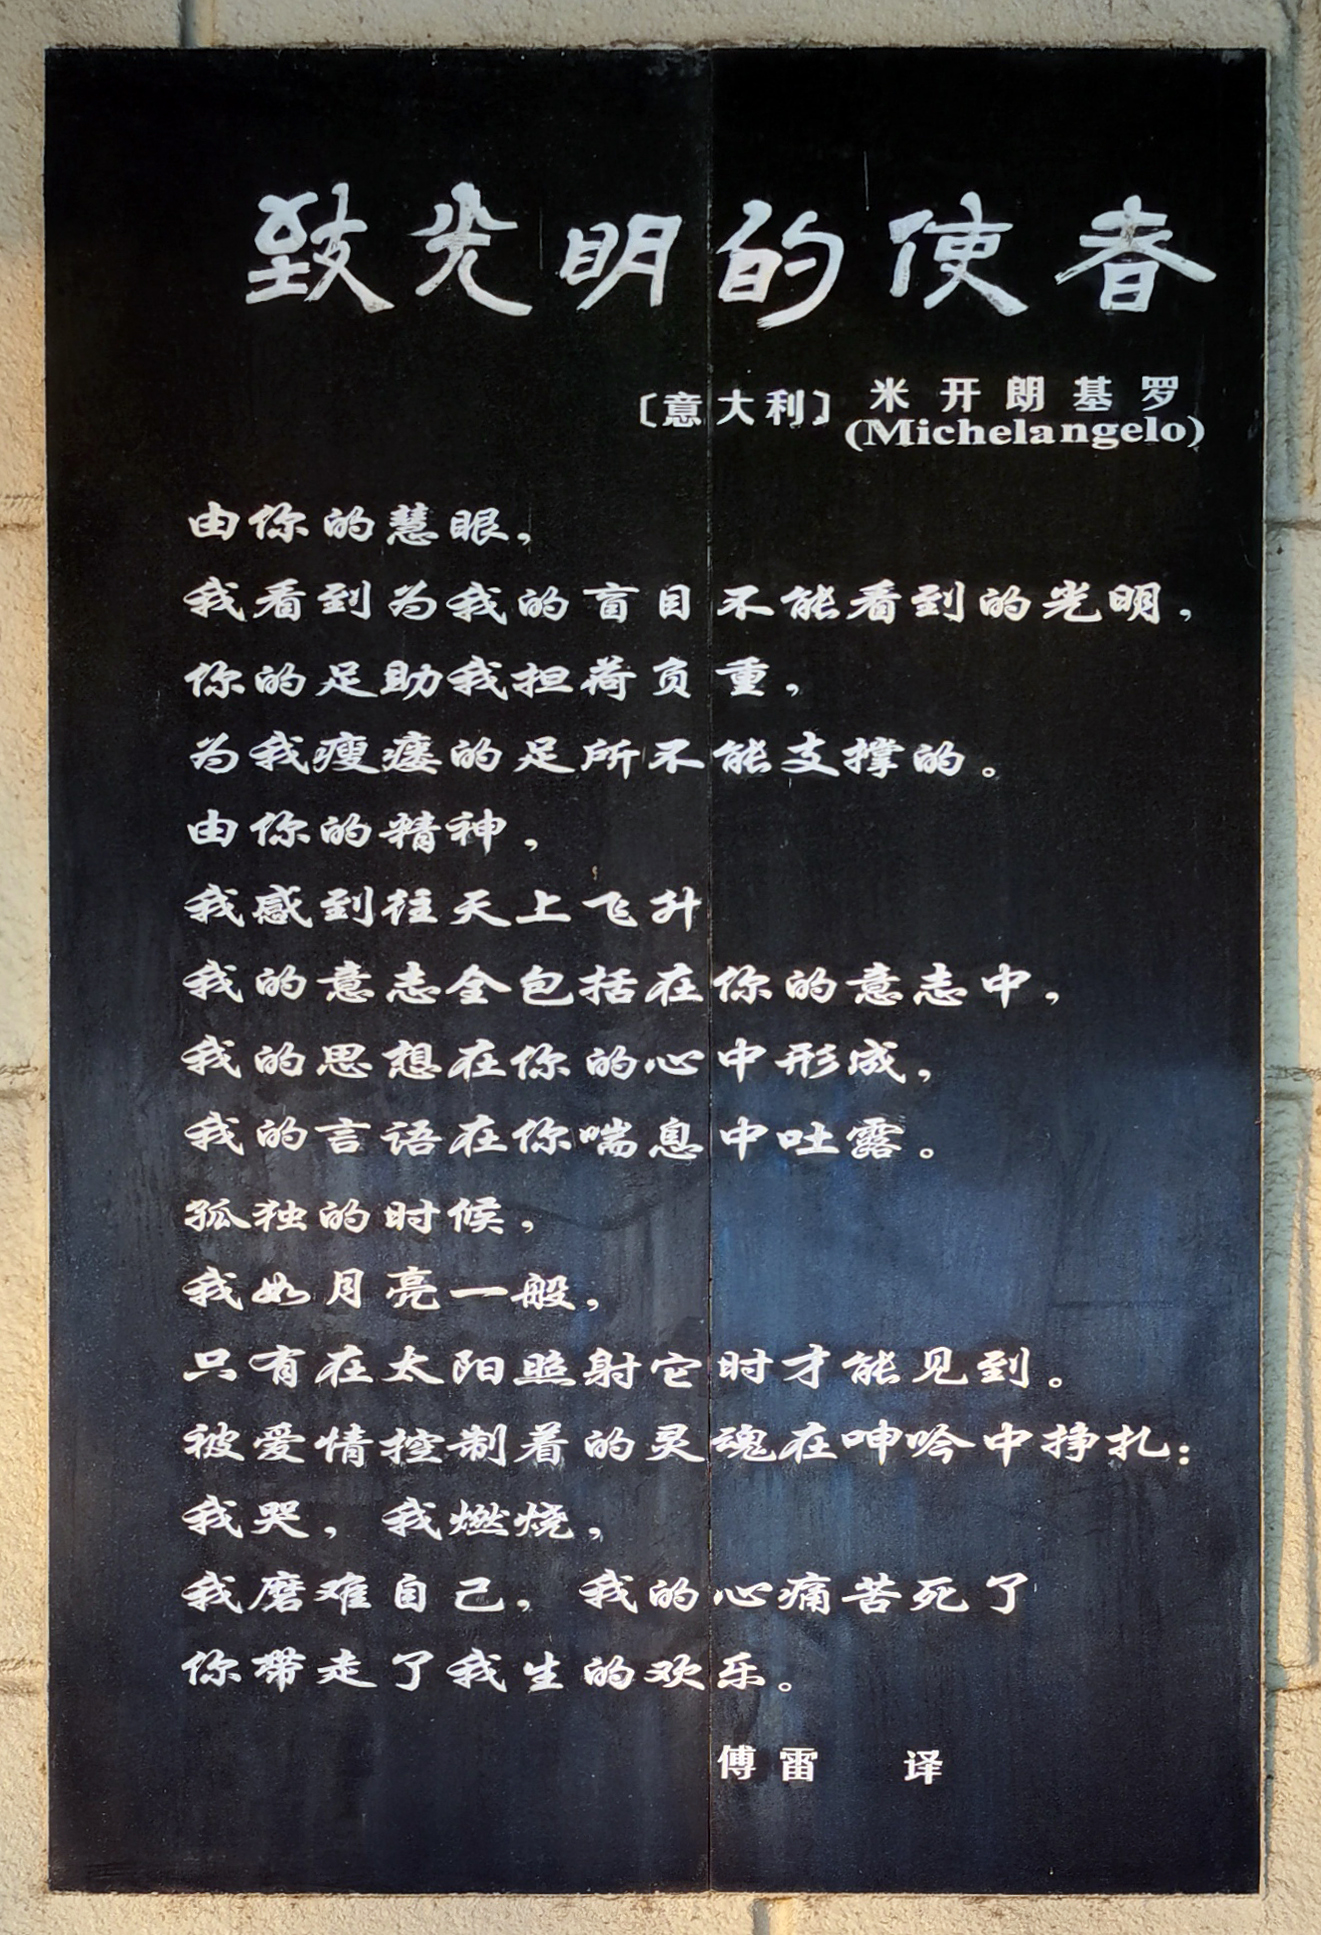 致光明的使者
〔意大利〕米开朗基罗
(Michelangelo)
由你的慧眼，
我看到为我的盲目不能看到的光明，
你的足助我担荷负重，
为我瘦瘘的足所不能支撑的。
由你的精神，
我感到往天上飞升
我的意志全包括在你的意志中，
我的思想在你的心中形成，
我的言语在你喘息中吐露。
孤独的时候，
我如月亮一般，
只有在太阳照射它时才能见到。
被爱情控制着的灵魂在呻吟中挣扎：
我哭，我燃烧，
我磨难自己，我的心痛苦死了
你带走了我生的欢乐。
傅雷 译